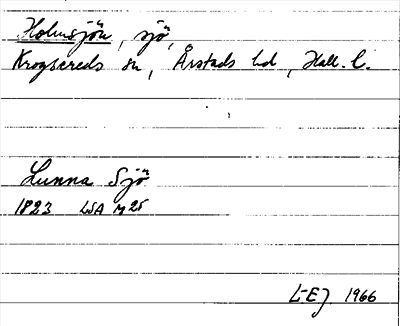 Holmsjön, sjö,
Krogsereds sn, Årstads hd, Hall. l.
Lunna Sjö
1823 LSA M25
L-EJ 1966